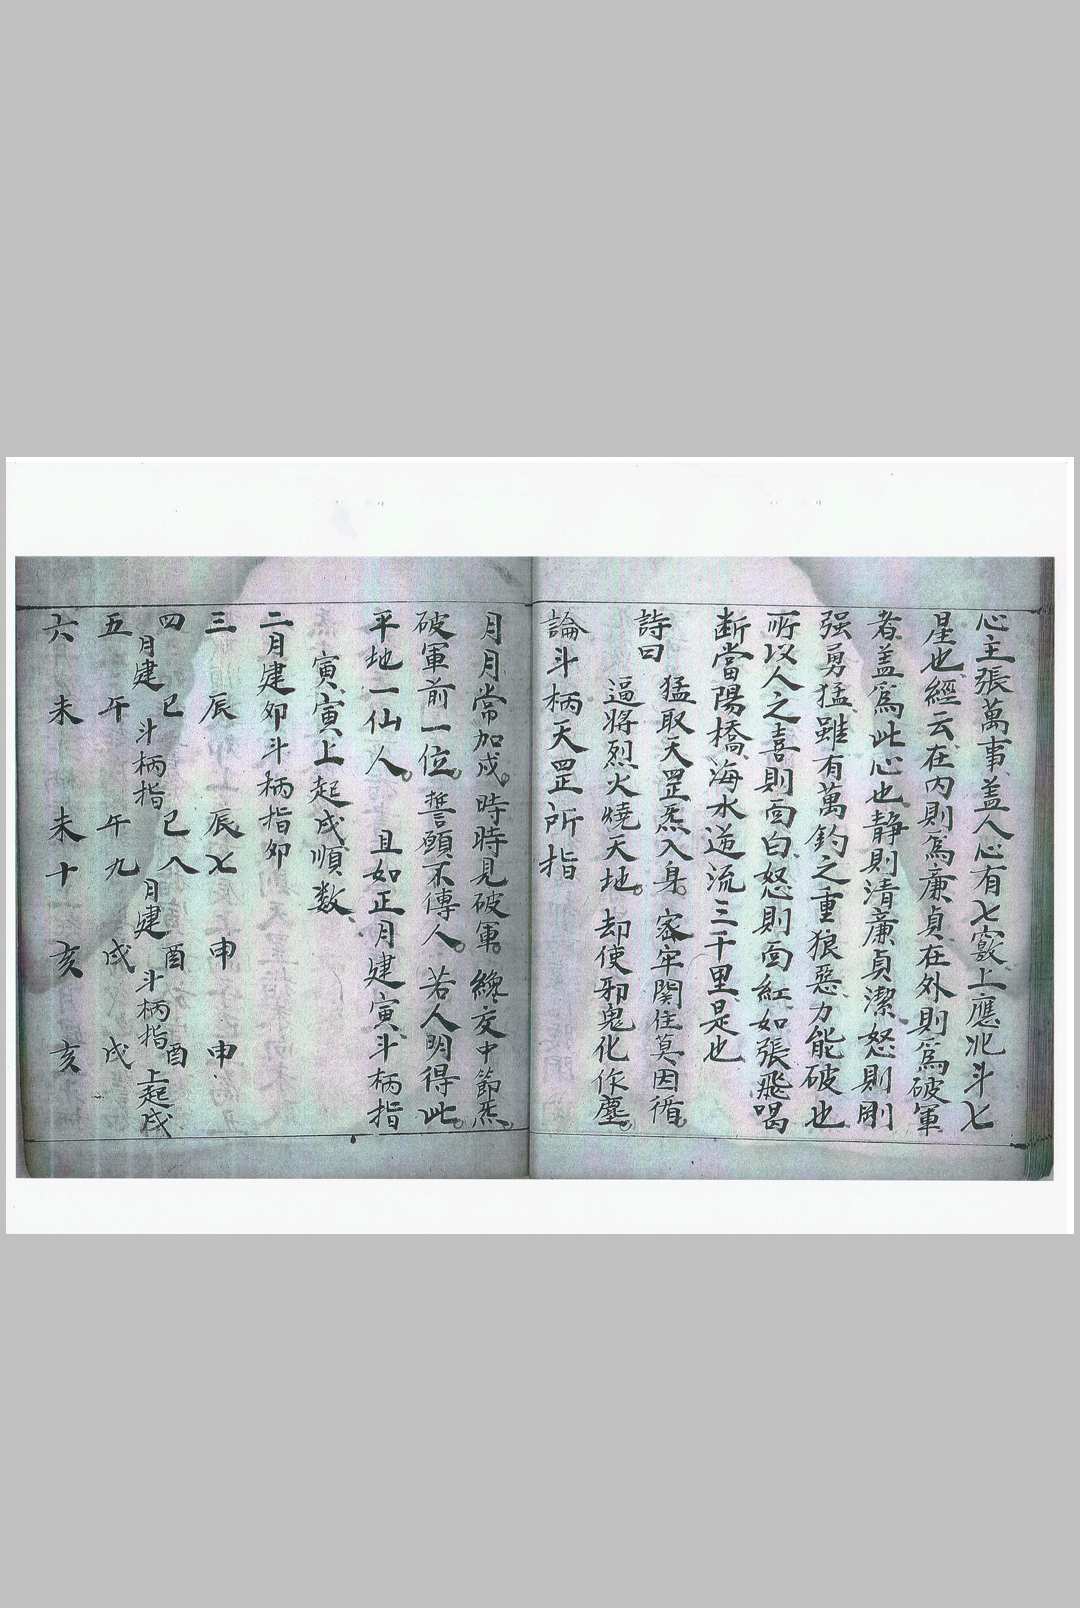 心主張萬事盖人心有七竅上應北斗七
星也經云在内則爲廉貞在外則爲破軍
者盖爲此心也靜則清廉貞潔怒則剛
强勇猛雖有萬鈞之重狼惡力能破也
所以人之喜則面白怒則面紅如張飛喝
断當陽橋海水逆流三千里是也
詩曰 猛取天罡炁入身。宻牢関住莫因循。
逼將烈火燒天地。却使邪鬼化作塵。
論斗柄天罡所指
月月常加戍。時時見破軍。纔交中節炁。
破軍前一位。誓願不傳人。若人明得此。
平地一仙人。且如正月建寅斗柄指
寅寅上起戍順数
二月建卯斗柄指卯
三 辰 辰 七 申 申
四 巳 巳 八 酉 酉
月建 斗柄指 月建 斗柄指 上起戍
五 午 午 九 戍 戍
六 未 未 十 亥 亥